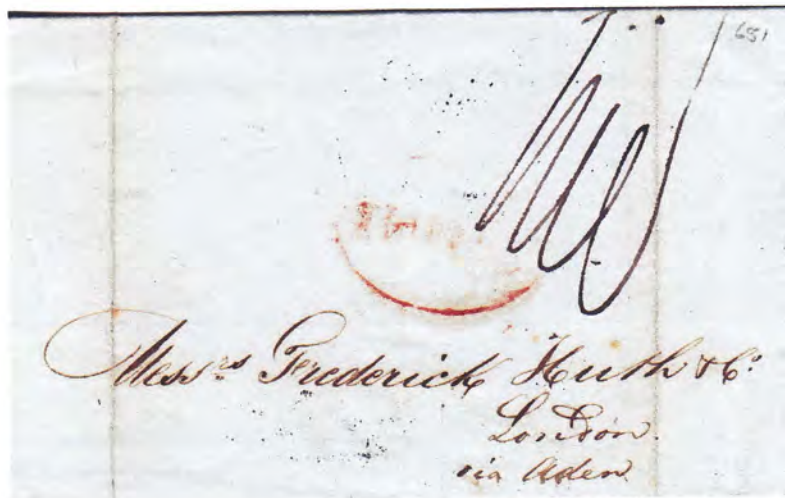 651
Mess.rs Frederick Huth & Co.
London.
via Aden